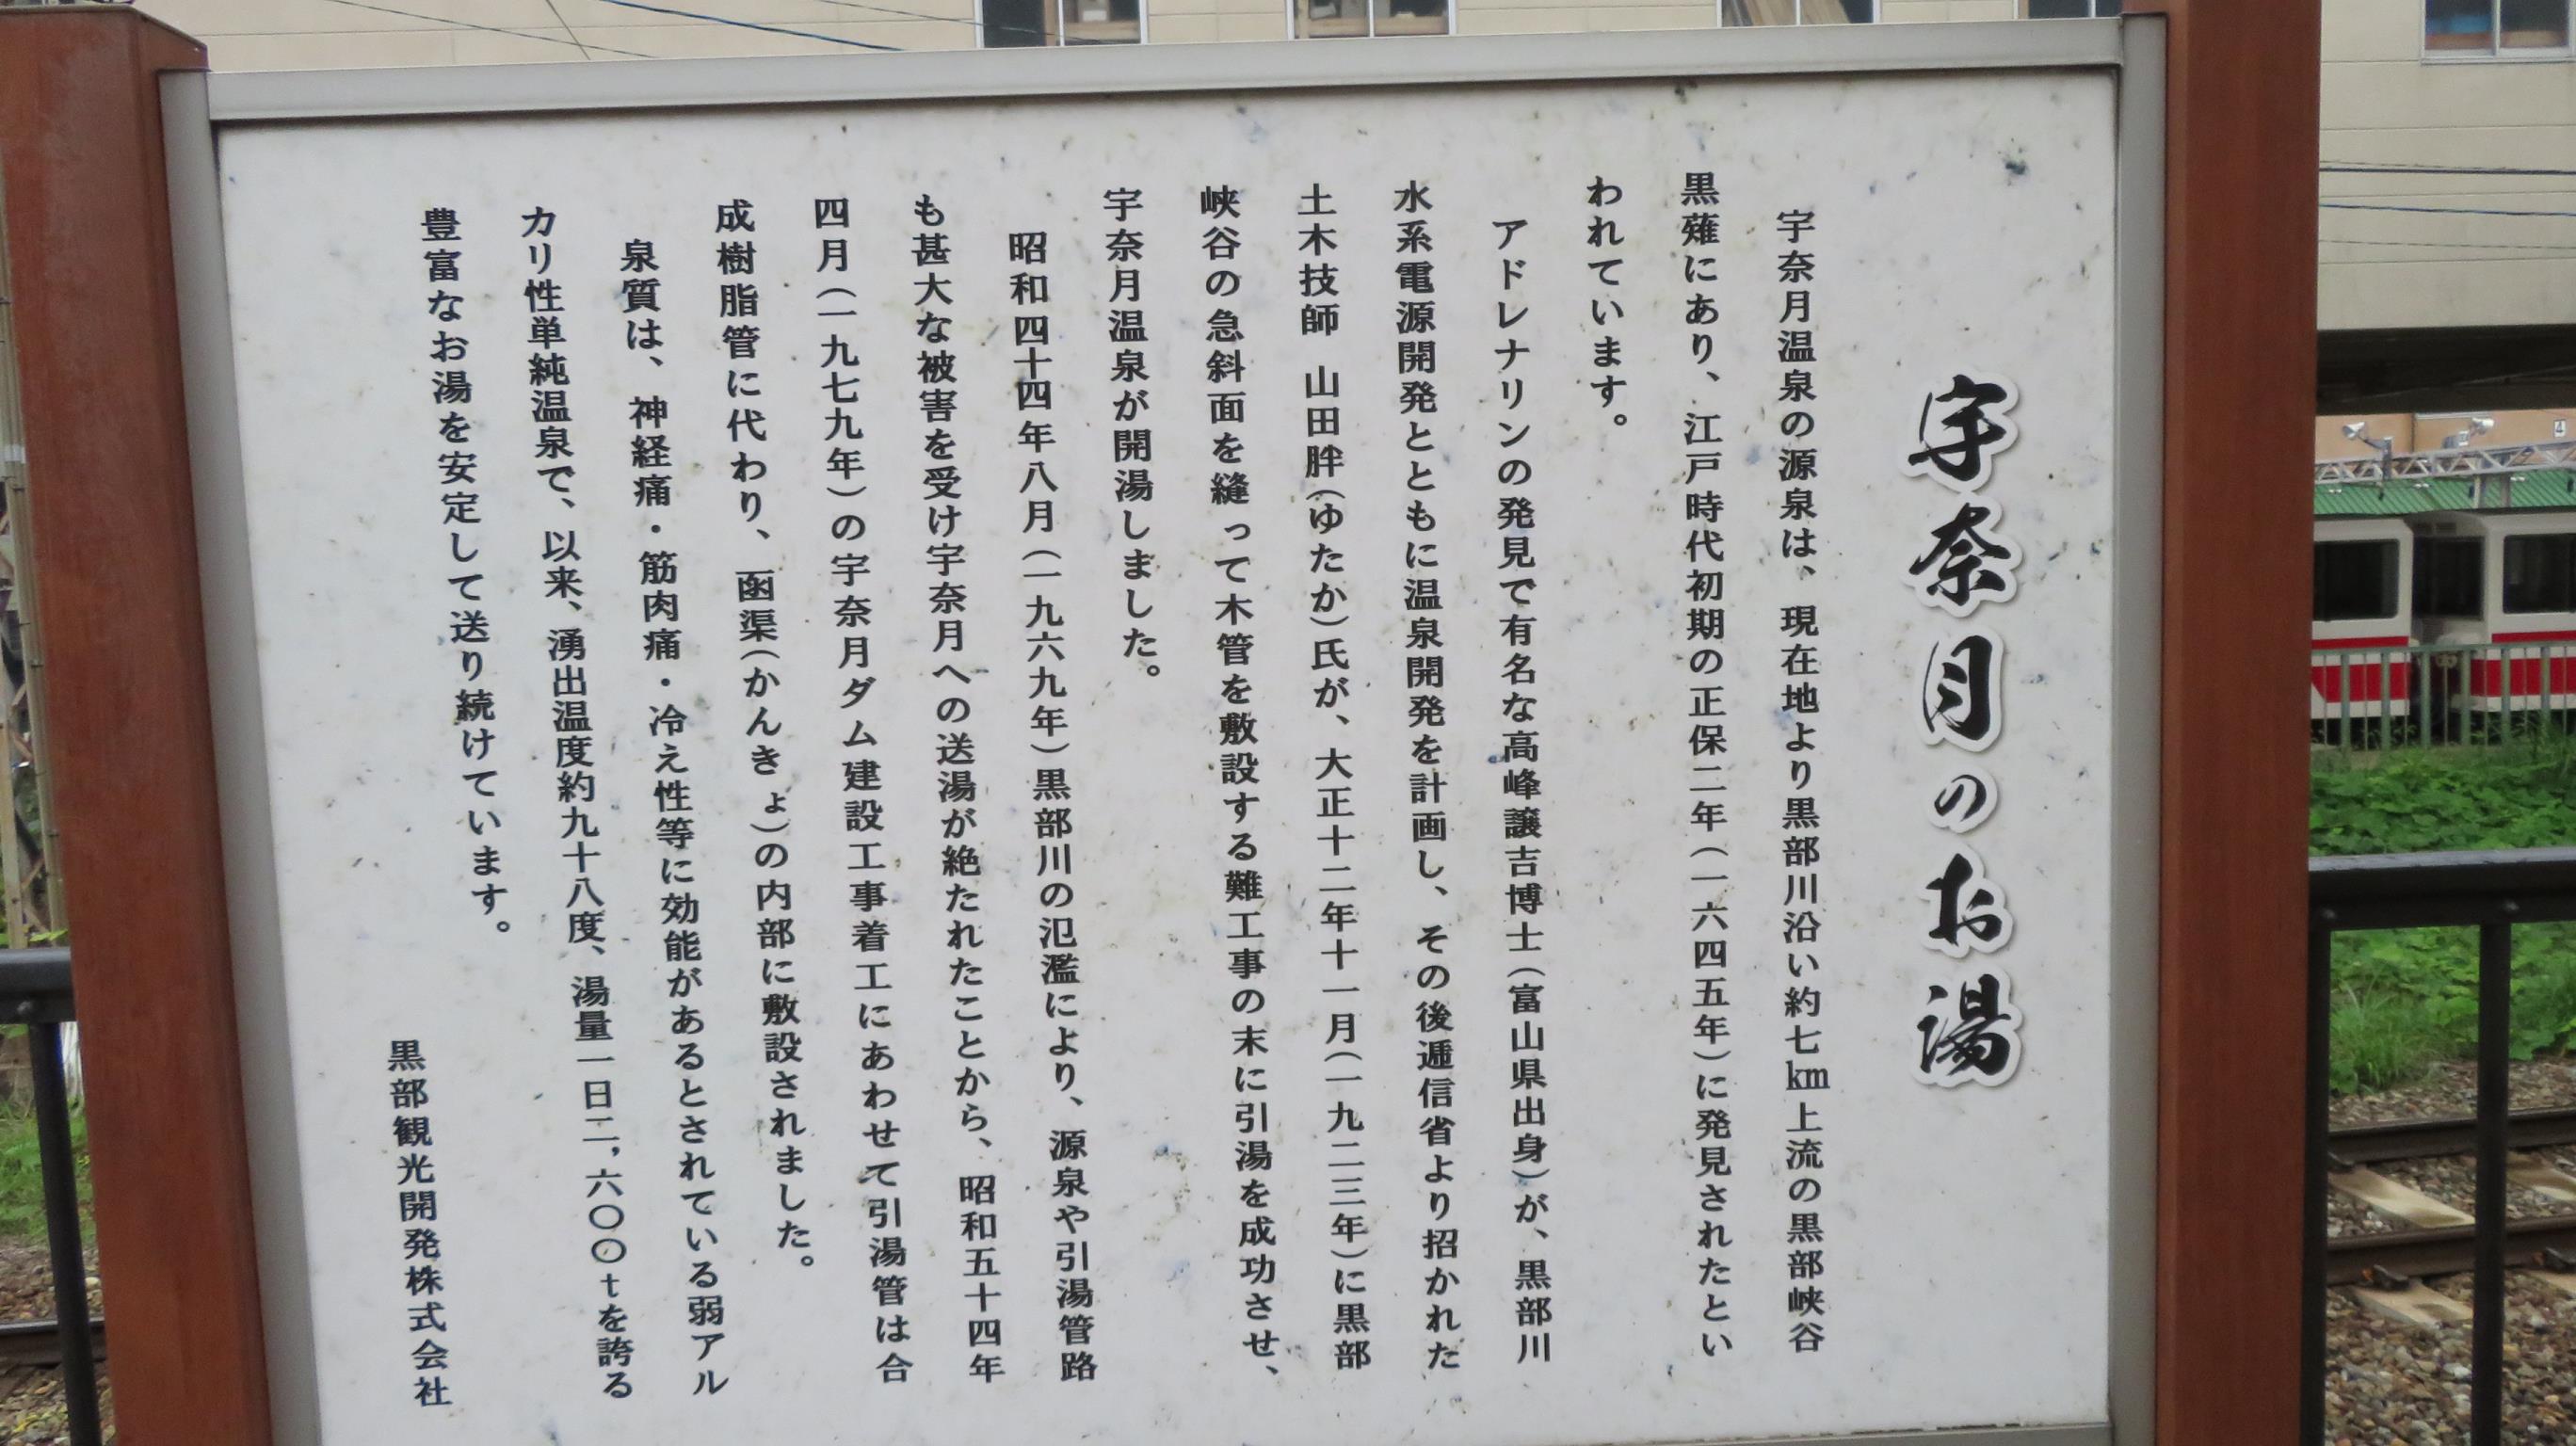 宇奈月のお湯
宇奈月温泉の源泉は、現在地より黒部川沿い約七㎞上流の黒部峡谷
黒薙にあり、江戸時代初期の正保二年(一六四五年)に発見されたとい
われています。
アドレナリンの発見で有名な高峰譲吉博士(富山県出身)が、黒部川
水系電源開発とともに温泉開発を計画し、その後逓信省より招かれた
土木技師 山田胖(ゆたか)氏が、大正十二年十一月(一九二三年)に黒部
峡谷の急斜面を縫って木管を敷設する難工事の末に引湯を成功させ、
宇奈月温泉が開湯しました。
昭和四十四年八月(一九六九年)黒部川の氾濫により、源泉や引湯管路
も甚大な被害を受け宇奈月への送湯が絶たれたことから、昭和五十四年
四月(一九七九年)の宇奈月ダム建設工事着工にあわせて引湯管は合
成樹脂管に代わり、函渠(かんきょ)の内部に敷設されました。
泉質は、神経痛・筋肉痛・冷え性等に効能があるとされている弱アル
カリ性単純温泉で、以来、湧出温度約九十八度、湯量一日二,六〇〇tを誇る
豊富なお湯を安定して送り続けています。
黒部観光開発株式会社